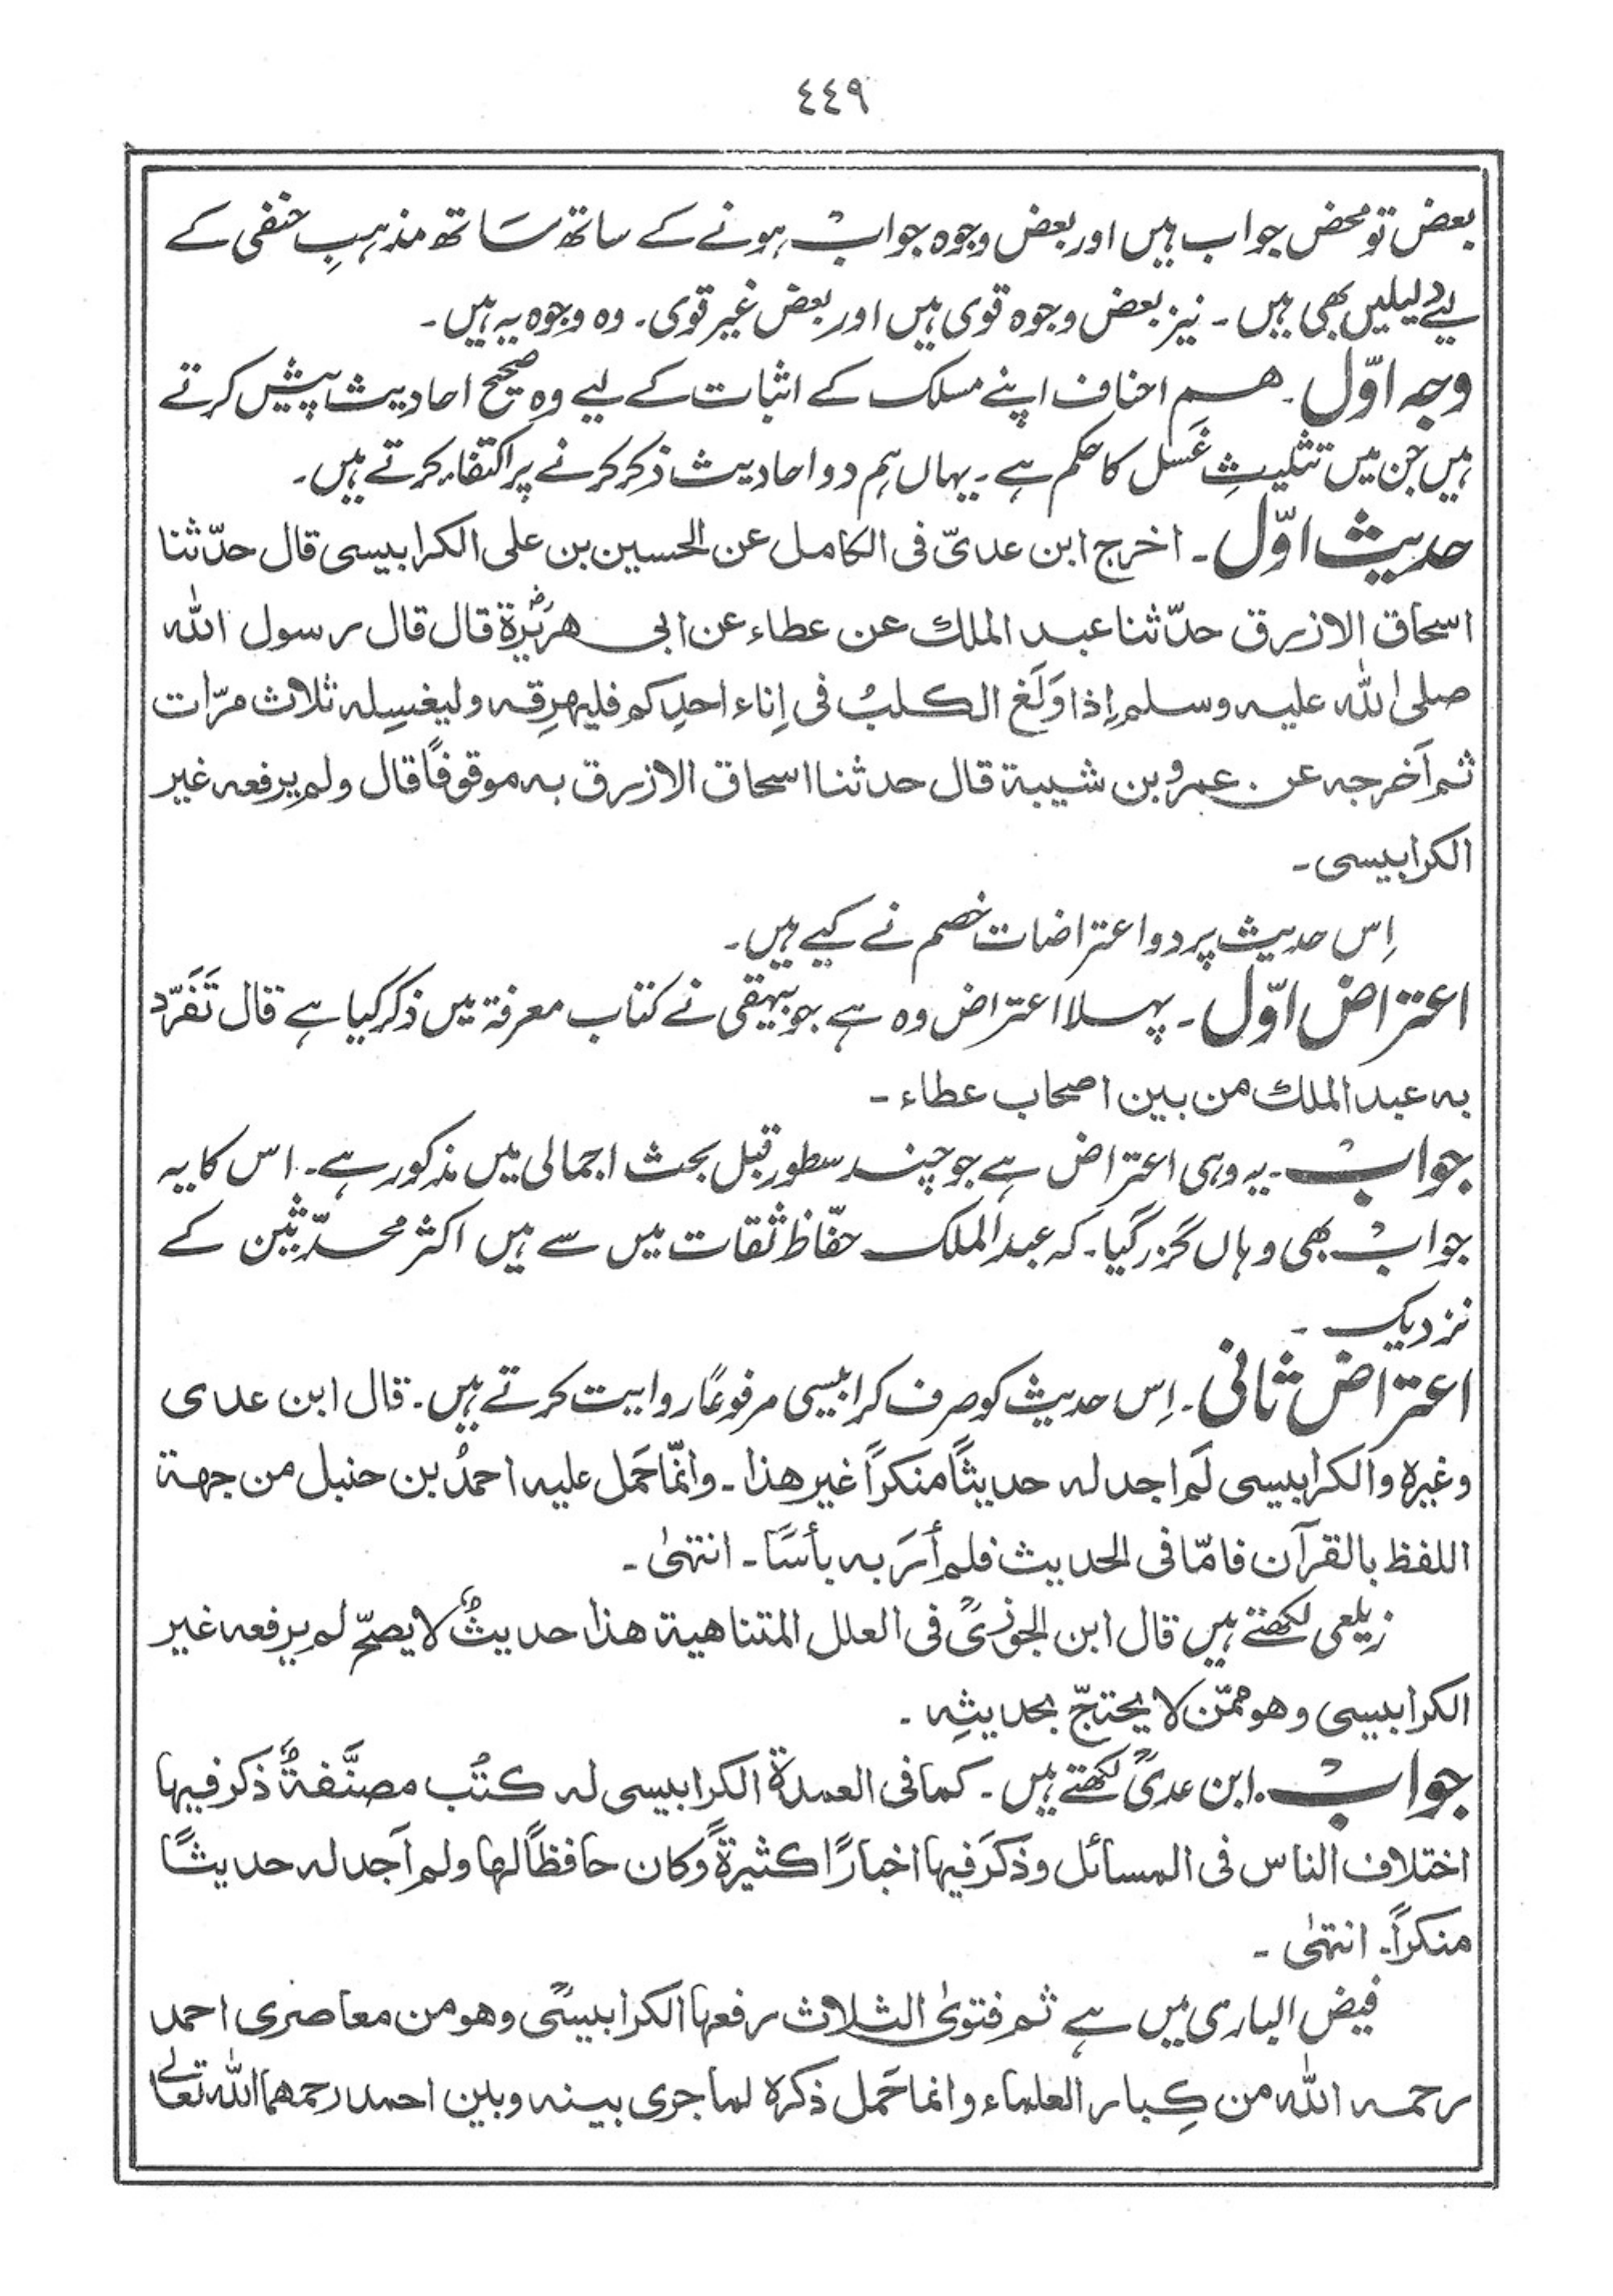 ٤٤٩
بعض تو محض جواب ہیں اور بعض وجوہ جواب ہونے کے ساتھ سَاتھ مذہبِ حنفی کے
لیے دلیلیں بھی ہیں ۔ نیز بعض وجوہ قوی ہیں اور بعض غیر قوی ۔ وہ وجوہ یہ ہیں ۔
وجہ اوّل ۔ ہم احناف اپنے مسلک کے اثبات کے لیے وہ صحیح احادیث پیش کرتے
ہیں جن میں تثلیثِ غَسل کا حکم ہے ۔ یہاں ہم دو احادیث ذکر کرنے پر اکتفاء کرتے ہیں ۔
حدیث اوّل ۔ اخرج ابن عدیّ فی الکامل عن الحسین بن علی الکرابیسی قال حدّثنا
اسحاق الازرق حدّثنا عبد الملك عن عطاء عن ابی هریرۃؓ قال قال رسول اللہ
صلی اللہ علیہ وسلم اِذا وَلَغ الکلبُ فی اِناء احدِکم فلیهرِقہ ولیغسِلہ ثلاث مرّات
ثم اَخرجہ عن عمرو بن شیبۃ قال حدثنا اسحاق الازرق بہ موقوفًا قال ولم یرفعہ غیر
الکرابیسی ۔
اِس حدیث پر دو اعتراضات خصم نے کیے ہیں ۔
اعتراض اوّل ۔ پہلا اعتراض وہ ہے جو بیہقی نے کتاب معرفۃ میں ذکر کیا ہے قال تَفَرّد
بہ عبد الملك من بین اصحاب عطاء ۔
جواب ۔ یہ وہی اعتراض ہے جو چند سطور قبل بحث اجمالی میں مذکور ہے ۔ اس کا یہ
جواب بھی وہاں گزر گیا ۔ کہ عبد الملک حفّاظ ثقات میں سے ہیں اکثر محدّثین کے
نزدیک ۔
اعتراض ثانی ۔ اِس حدیث کو صرف کرابیسی مرفوعًا روایت کرتے ہیں ۔ قال ابن عدی
وغیرہ والکرابیسی لَم اجد لہ حدیثًا منکرًا غیر هذا ۔ وانّما حَمل علیہ احمدُ بن حنبل من جهۃ
اللفظ بالقرآن فامّا فی الحدیث فلم أرَ بہ بأسًا ۔ انتہیٰ ۔
زیلعی لکھتے ہیں قال ابن الجوزیؒ فی العلل المتناهیۃ هذا حدیثٌ لا یصحّ لم یرفعہ غیر
الکرابیسی وهو ممّن لا یحتجّ بحدیثِہ ۔
جواب ۔ ابن عدیؒ لکھتے ہیں ۔ کما فی العمدۃ الکرابیسی لہ کتُب مصنَّفۃٌ ذکر فیها
اختلاف الناس فی المسائل وذکَر فیها اخبارًا کثیرۃً وکان حافظًا لها ولم اَجد لہ حدیثًا
منکرًا ۔ انتہیٰ ۔
فیض الباری میں ہے ثم فتوی الثلاث رفعها الکرابیسیؒ وهو من معاصری احمد
رحمہ اللہ من کِبار العلماء وانما حَمل ذکرہ لما جری بینہ وبین احمد رحمهما اللہ تعالےٰ